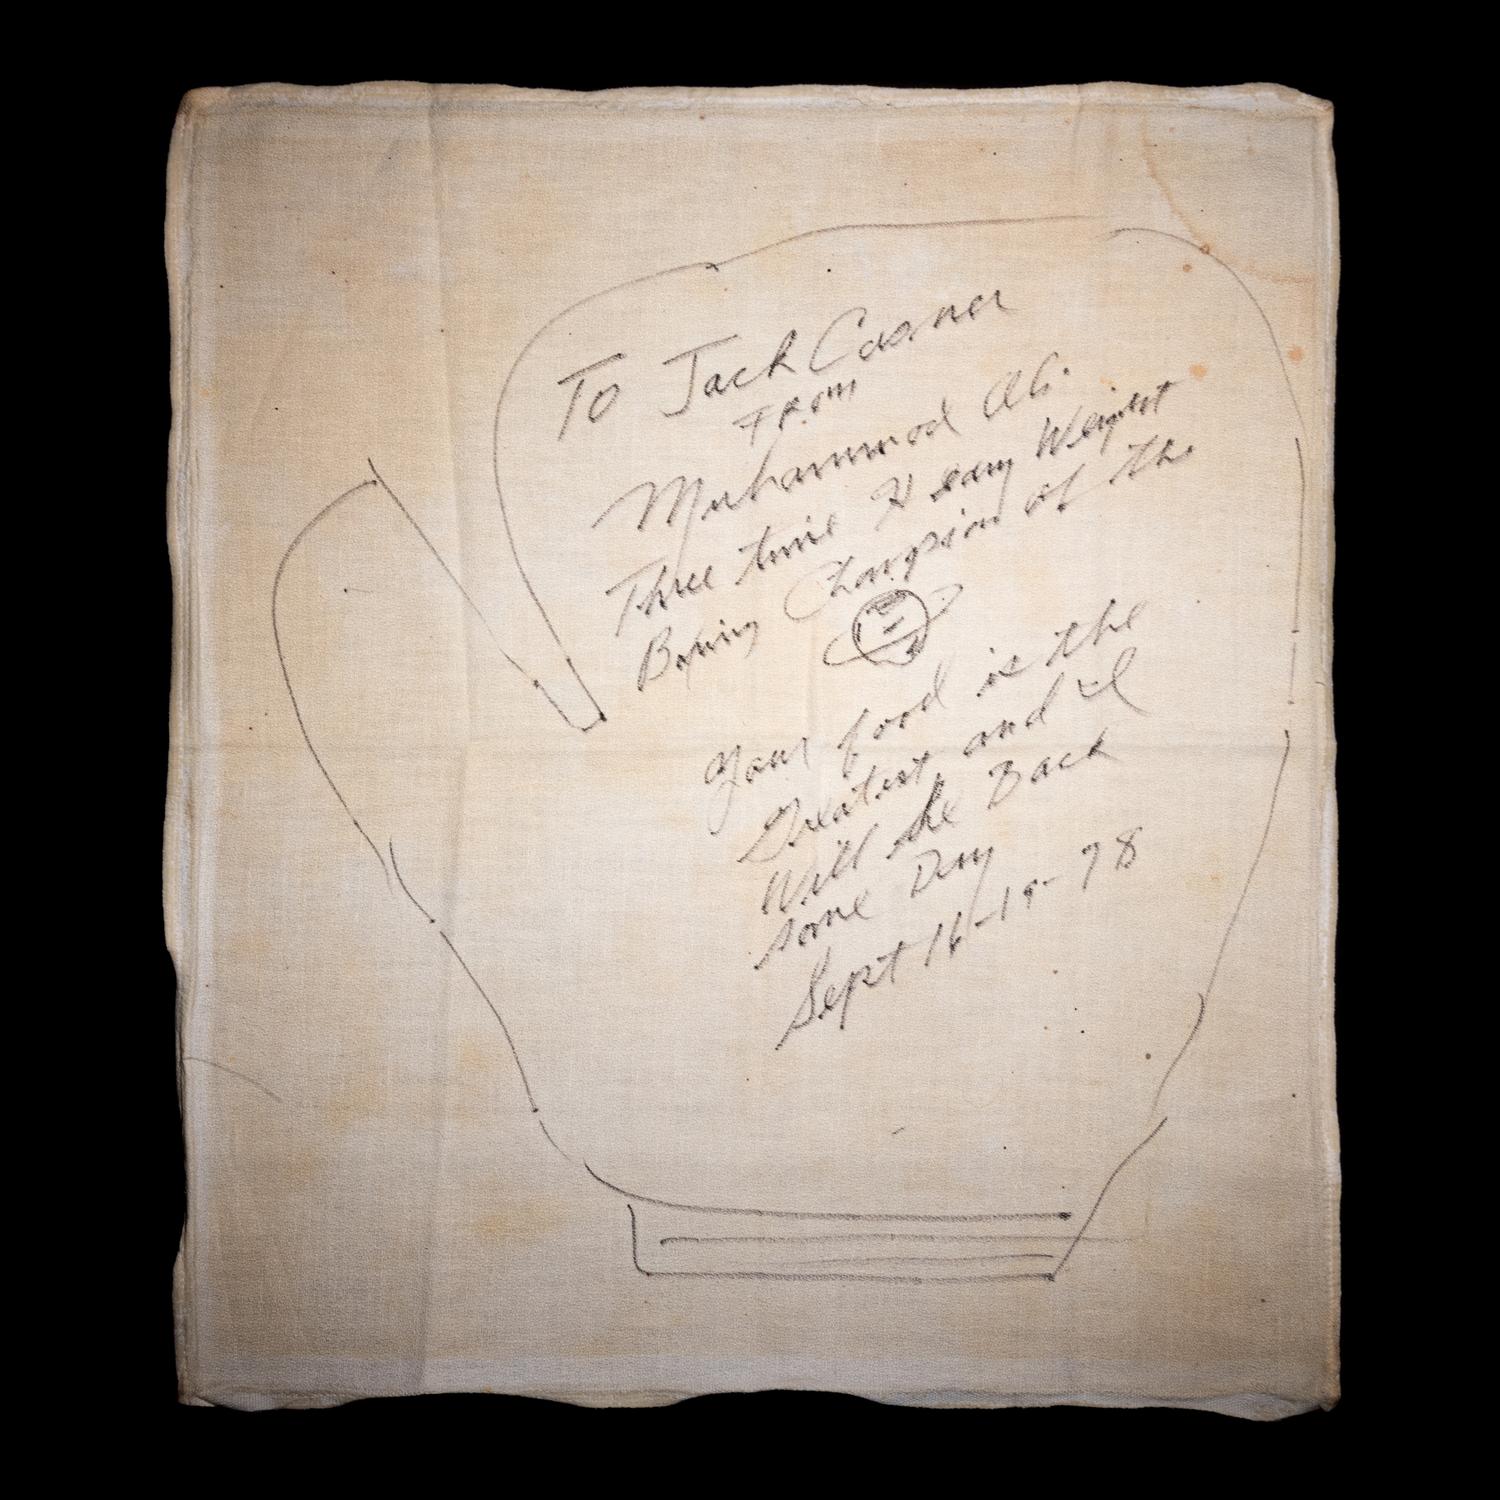 To Jack Cosner
From
Muhammad Ali.
Three time Heavy Weight
Boxing Champion of the
Your food is the
Greatest and I
Will be Back
some Day
Sept 16-19-78